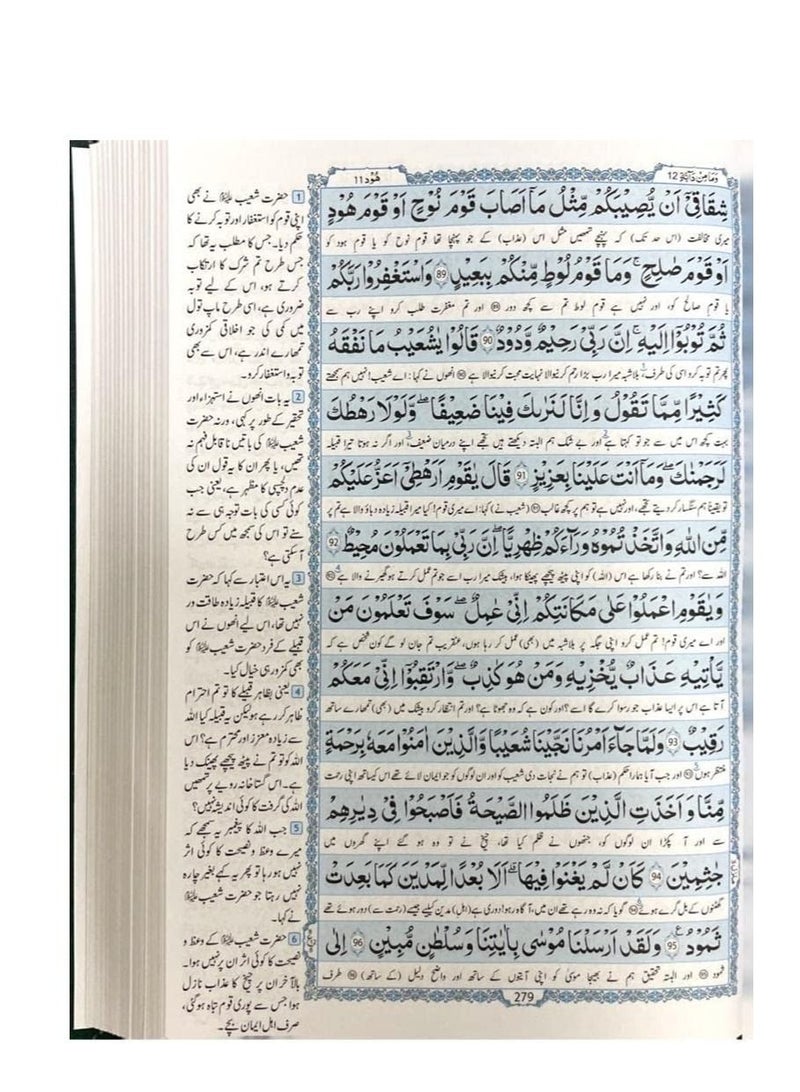 وَمَا مِنْ دَآبَّةٍ 12
هُوْد 11
شِقَاقِيْٓ اَنْ يُّصِيْبَكُمْ مِّثْلُ مَآ اَصَابَ قَوْمَ نُوْحٍ اَوْ قَوْمَ هُوْدٍ
میری مخالفت (اس حد تک) کہ پہنچے تمھیں مثل اس (عذاب) کے جو پہنچا تھا قوم نوح کو یا قوم ہود کو
اَوْ قَوْمَ صٰلِحٍ ۚ وَمَا قَوْمُ لُوْطٍ مِّنْكُمْ بِبَعِيْدٍ 89 وَاسْتَغْفِرُوْا رَبَّكُمْ
یا قوم صالح کو، اور نہیں ہے قوم لوط تم سے کچھ دور 89 اور تم مغفرت طلب کرو اپنے رب سے
ثُمَّ تُوْبُوْٓا اِلَيْهِ ۚ اِنَّ رَبِّيْ رَحِيْمٌ وَّدُوْدٌ 90 قَالُوْا يٰشُعَيْبُ مَا نَفْقَهُ
پھر تم توبہ کرو اسی کی طرف، بلاشبہ میرا رب بڑا رحم کرنیوالا نہایت محبت کرنیوالا ہے 90 انھوں نے کہا: اے شعیب! نہیں ہم سمجھتے
كَثِيْرًا مِّمَّا تَقُوْلُ وَاِنَّا لَنَرٰىكَ فِيْنَا ضَعِيْفًا ۚ وَلَوْلَا رَهْطُكَ
بہت کچھ اس میں سے جو تو کہتا ہے 2 اور بے شک ہم البتہ دیکھتے ہیں تجھے اپنے درمیان ضعیف، 3 اور اگر نہ ہوتا تیرا قبیلہ
لَرَجَمْنٰكَ ۡ وَمَآ اَنْتَ عَلَيْنَا بِعَزِيْزٍ 91 قَالَ يٰقَوْمِ اَرَهْطِيْٓ اَعَزُّ عَلَيْكُمْ
تو یقیناً ہم سنگسار کر دیتے تجھے، اور نہیں ہے تو ہم پر کچھ غالب 91 (شعیب نے) کہا: اے میری قوم! کیا میرا قبیلہ زیادہ دباؤ والا ہے تم پر
مِّنَ اللّٰهِ ۭ وَاتَّخَذْتُمُوْهُ وَرَآءَكُمْ ظِهْرِيًّا ۭ اِنَّ رَبِّيْ بِمَا تَعْمَلُوْنَ مُحِيْطٌ 92
اللہ سے؟ اور تم نے بنا رکھا ہے اس (اللہ) کو اپنی پیٹھ پیچھے پھینکا ہوا، بیشک میرا رب اسے جو تم عمل کرتے ہو گھیرنے والا ہے 4 92
وَيٰقَوْمِ اعْمَلُوْا عَلٰى مَكَانَتِكُمْ اِنِّيْ عٰمِلٌ ۭ سَوْفَ تَعْلَمُوْنَ مَنْ
اور اے میری قوم! تم عمل کرو اپنی جگہ پر بلاشبہ میں (بھی) عمل کر رہا ہوں، عنقریب تم جان لو گے کون شخص ہے کہ
يَّاْتِيْهِ عَذَابٌ يُّخْزِيْهِ وَمَنْ هُوَ كَاذِبٌ ۭ وَارْتَقِبُوْٓا اِنِّيْ مَعَكُمْ
آتا ہے اس پر ایسا عذاب جو رسوا کرے گا اسے؟ اور کون ہے کہ وہ جھوٹا ہے؟ اور تم انتظار کرو بیشک میں (بھی) تمھارے ساتھ
رَقِيْبٌ 93 وَلَمَّا جَآءَ اَمْرُنَا نَجَّيْنَا شُعَيْبًا وَّالَّذِيْنَ اٰمَنُوْا مَعَهٗ بِرَحْمَةٍ
منتظر ہوں 5 93 اور جب آیا ہمارا حکم (عذاب) تو ہم نے نجات دی شعیب کو اور ان لوگوں کو جو ایمان لائے تھے اس کیساتھ اپنی رحمت
مِّنَّا وَاَخَذَتِ الَّذِيْنَ ظَلَمُوا الصَّيْحَةُ فَاَصْبَحُوْا فِيْ دِيَارِهِمْ
سے اور آ پکڑا ان لوگوں کو، جنھوں نے ظلم کیا تھا، چیخ نے تو وہ ہو گئے اپنے گھروں میں
جٰثِمِيْنَ 94 كَاَنْ لَّمْ يَغْنَوْا فِيْهَا ۭ اَلَا بُعْدًا لِّمَدْيَنَ كَمَا بَعِدَتْ
گھٹنوں کے بل گرے ہوئے 6 94 گویا کہ نہ وہ رہے تھے ان میں، آگاہ رہو! دوری ہے (اہل) مدین کیلیے جیسے (رحمت سے) دور ہوئے تھے
ثَمُوْدُ 95 وَلَقَدْ اَرْسَلْنَا مُوْسٰى بِاٰيٰتِنَا وَسُلْطٰنٍ مُّبِيْنٍ 96 اِلٰى
ثمود 95 اور البتہ تحقیق ہم نے بھیجا موسیٰ کو اپنی آیتوں کے ساتھ اور واضح دلیل (کے ساتھ) 96 طرف
279
1 حضرت شعیب علیہ السلام نے بھی
اپنی قوم کو استغفار اور توبہ کرنے کا
حکم دیا۔ جس کا مطلب یہ تھا کہ
جس طرح تم شرک کا ارتکاب
کرتے ہو، اس کے لیے توبہ
ضروری ہے، اسی طرح ماپ تول
میں کمی کی جو اخلاقی کمزوری
تمھارے اندر ہے، اس سے بھی
توبہ و استغفار کرو۔
2 یہ بات انھوں نے استہزاء اور
تحقیر کے طور پر کہی، ورنہ حضرت
شعیب علیہ السلام کی باتیں ناقابل فہم نہ
تھیں، یا پھر ان کا یہ قول ان کی
عدم دلچسپی کا مظہر ہے، یعنی جب
کوئی کسی کی بات توجہ ہی سے نہ
سنے تو اس کی سمجھ میں کس طرح
آسکتی ہے؟
3 یہ اس اعتبار سے کہا کہ حضرت
شعیب علیہ السلام کا قبیلہ زیادہ طاقت ور
نہیں تھا، اس لیے انھوں نے اس
قبیلے کے فرد حضرت شعیب علیہ السلام کو
بھی کمزور ہی خیال کیا۔
4 یعنی بظاہر قبیلے کا تو تم احترام
ظاہر کر رہے ہو لیکن یہ قبیلہ کیا اللہ
سے زیادہ معزز اور محترم ہے؟ اس
اللہ کو تو تم نے پیٹھ پیچھے پھینک دیا
ہے۔ اس گستاخانہ رویے پر تمھیں
اللہ کی گرفت کا کوئی اندیشہ نہیں؟
5 جب اللہ کا پیغمبر یہ سمجھے کہ
میرے وعظ و نصیحت کا کوئی اثر
نہیں ہو رہا تو پھر یہ کہے بغیر چارہ
نہیں رہتا جو حضرت شعیب علیہ السلام
نے کہا۔
6 حضرت شعیب علیہ السلام کے وعظ و
نصیحت کا کوئی اثر ان پر نہیں ہوا۔
بالآخر ان پر چیخ کا عذاب نازل
ہوا جس سے پوری قوم تباہ ہو گئی،
صرف اہل ایمان بچے۔